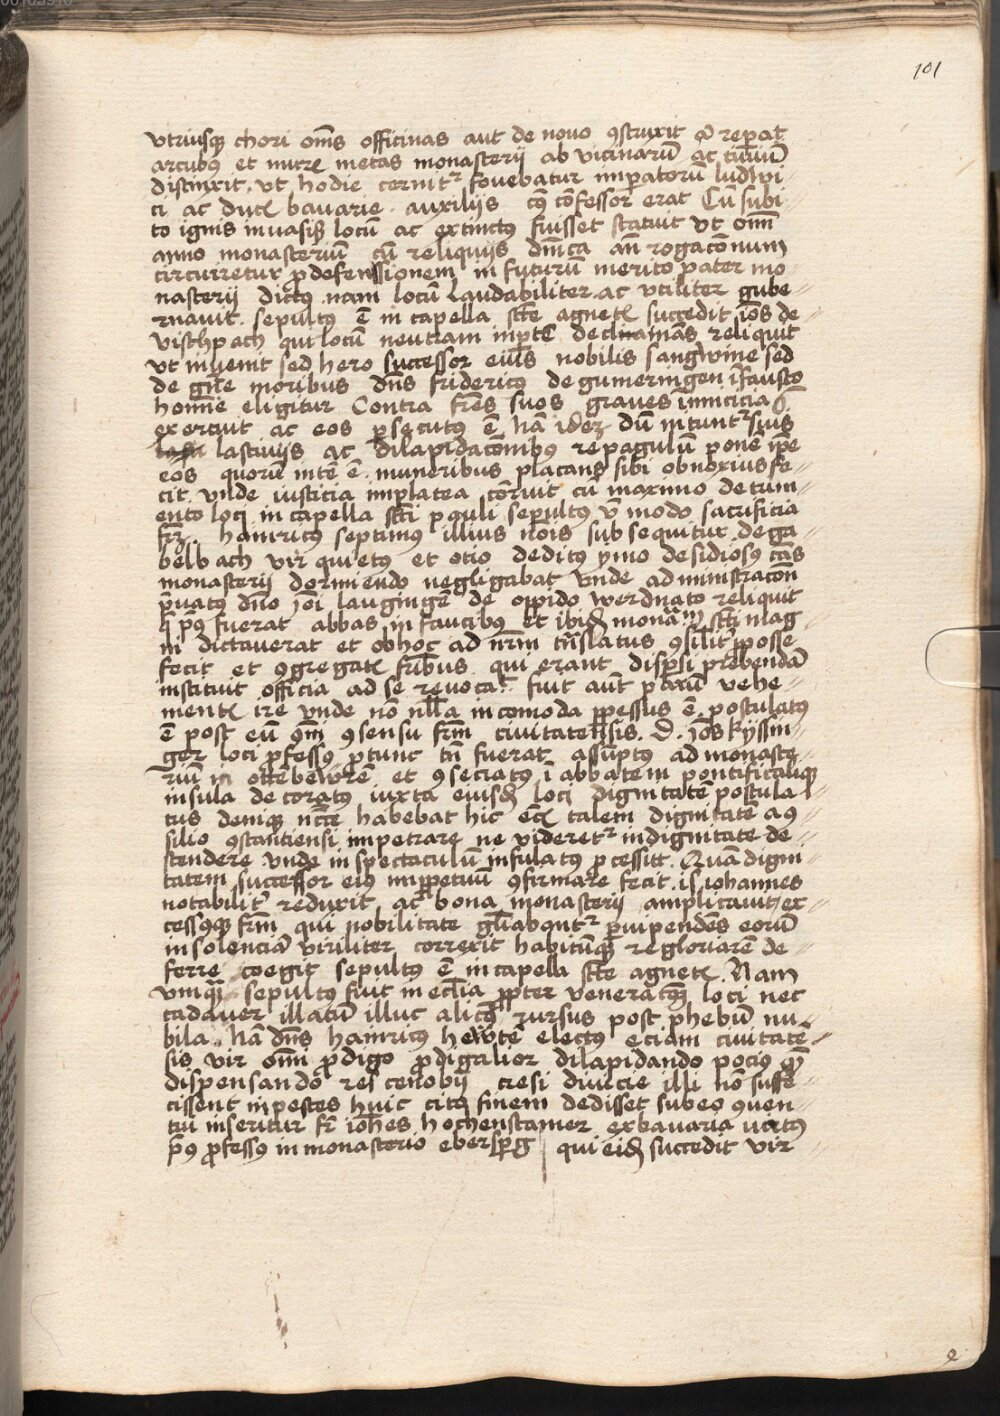 101
vtriusq chori om̄s officinas aut de nouo ꝯstruxit ł reperat
arcubꝰ et mure metas monasterij ab vicinarū ac ciuiū
distinxit, vt hodie cernitr fouebatur imꝑatorū ludwi
ci ac ducꝭ bavarie auxilijs cꝰ cōfessor erat Cū subi
to ignis inuasisꝫ locū ac extinctꝰ fuisset statuit vt om̄i
anno monasteriū cū reliquijs dn̄ica an̄ rogacōnum
circuiretur ꝑ defenssionem in futurū merito pater mo
nasterij dictꝰ nam locū laudabiliter ac vtiliter gube
rnauit. sepultꝰ ē in capella scē agnetꝭ succedit ioh̄s de
vischpach qui locū neutram in ꝑtē declinamās reliquit
vt inuenit sed hero successor eiuꝰ nobilis sangwine sed
de gn̄e moribus dn̄s fridericꝰ de gumeringen ifausto
homīe eligitur Contra fr̄es suos graues inimicicias
exercuit ac eos ꝑsecutꝰ ē nā idez dū nitunt suis
lasciuijs ac dilapidacōnibꝰ repagulū pone ipē
eos quorū intē ē muneribus placans sibi obnoxius fe
cit vnde iusticia in platea cōruit cū maximo detrim
ento locj in capella sc̄ti pauli sepultꝰ v modo sacrificia
frz. hainricꝰ septimus illius nois subsequitur de ga
belbach vir quietꝰ et otio deditꝰ ymo desidiosꝰ cās
monasterij dormiendo negligabat vnde administracōn
pͥuatꝰ dn̄o joh̄i laugingē de oppido werdnato reliquit
q pͥꝰ fuerat abbas in faucibꝰ et ibidē mona sc̄ti mag
ni dictauerat et ob hoc ad nr̄m trāslatus ꝯsilit posse
fecit et ꝯgregatꝭ fr̄ibus qui erant dispsi prebendā
instituit officia ad se reuocat fuit aūt parū vehe
mentꝭ ire vnde nō nll̄a incomoda ꝑpessus ē postulatꝰ
ē post eū ꝯsensu frm̄ ciuitatēsis. D. joh̄s kyssin
ger loci ꝓfessꝰ ꝓtunc tn̄ fuerat assūptꝰ ad monaste
riū in ottebewrē et ꝯseciatꝰ ī abbatem pontificaliq
insula decoratꝰ iuxta eiusdē loci dignitatē postula
tus deniq ncc̄e habebat hic ecꝭ talem dignitatē a ꝯ
silio ꝯstantiensi impetrare ne videretr indignitate de
scendere vnde in spectaculū infulatꝰ ꝓcessit. Quā digni
tatem successor eiꝰ imꝑpetuū ꝯfirmare fecit. is iohannes
notabilitꝰ reduxit ac bona monasterij amplicauit, ex
cessusq frm̄ qui nobilitate gl̄iabantr ꝑuipendēs eorū
insolenciā viriliter correxit habitūq regloriarē de
ferre coegit sepultꝰ ē in capella scē agnetꝭ. Nam
vniqꝫ sepultꝰ fuit in ecl̄ia ꝓpter veneracōꝫ loci nec
cadauer illatū illuc alicꝰ rursus post phebū nu
bila. nā dn̄s hainricꝰ hewtē electꝰ eciam ciuitatē
sis vir om̄i ꝓdigo ꝓdigalior dilapidando pociꝰ qꝫ
dispensando res cenobij cresi diuicie illi nō suffe
cissent in pestes huic citꝰ finem dedisset sub eo ꝯuen
tui inseritur fr̄ ioh̄es hochenstainer ex bauaria vtriꝰ
pͥꝰ ꝓfessꝰ in monasterio eberspg qui eidē succedit vir